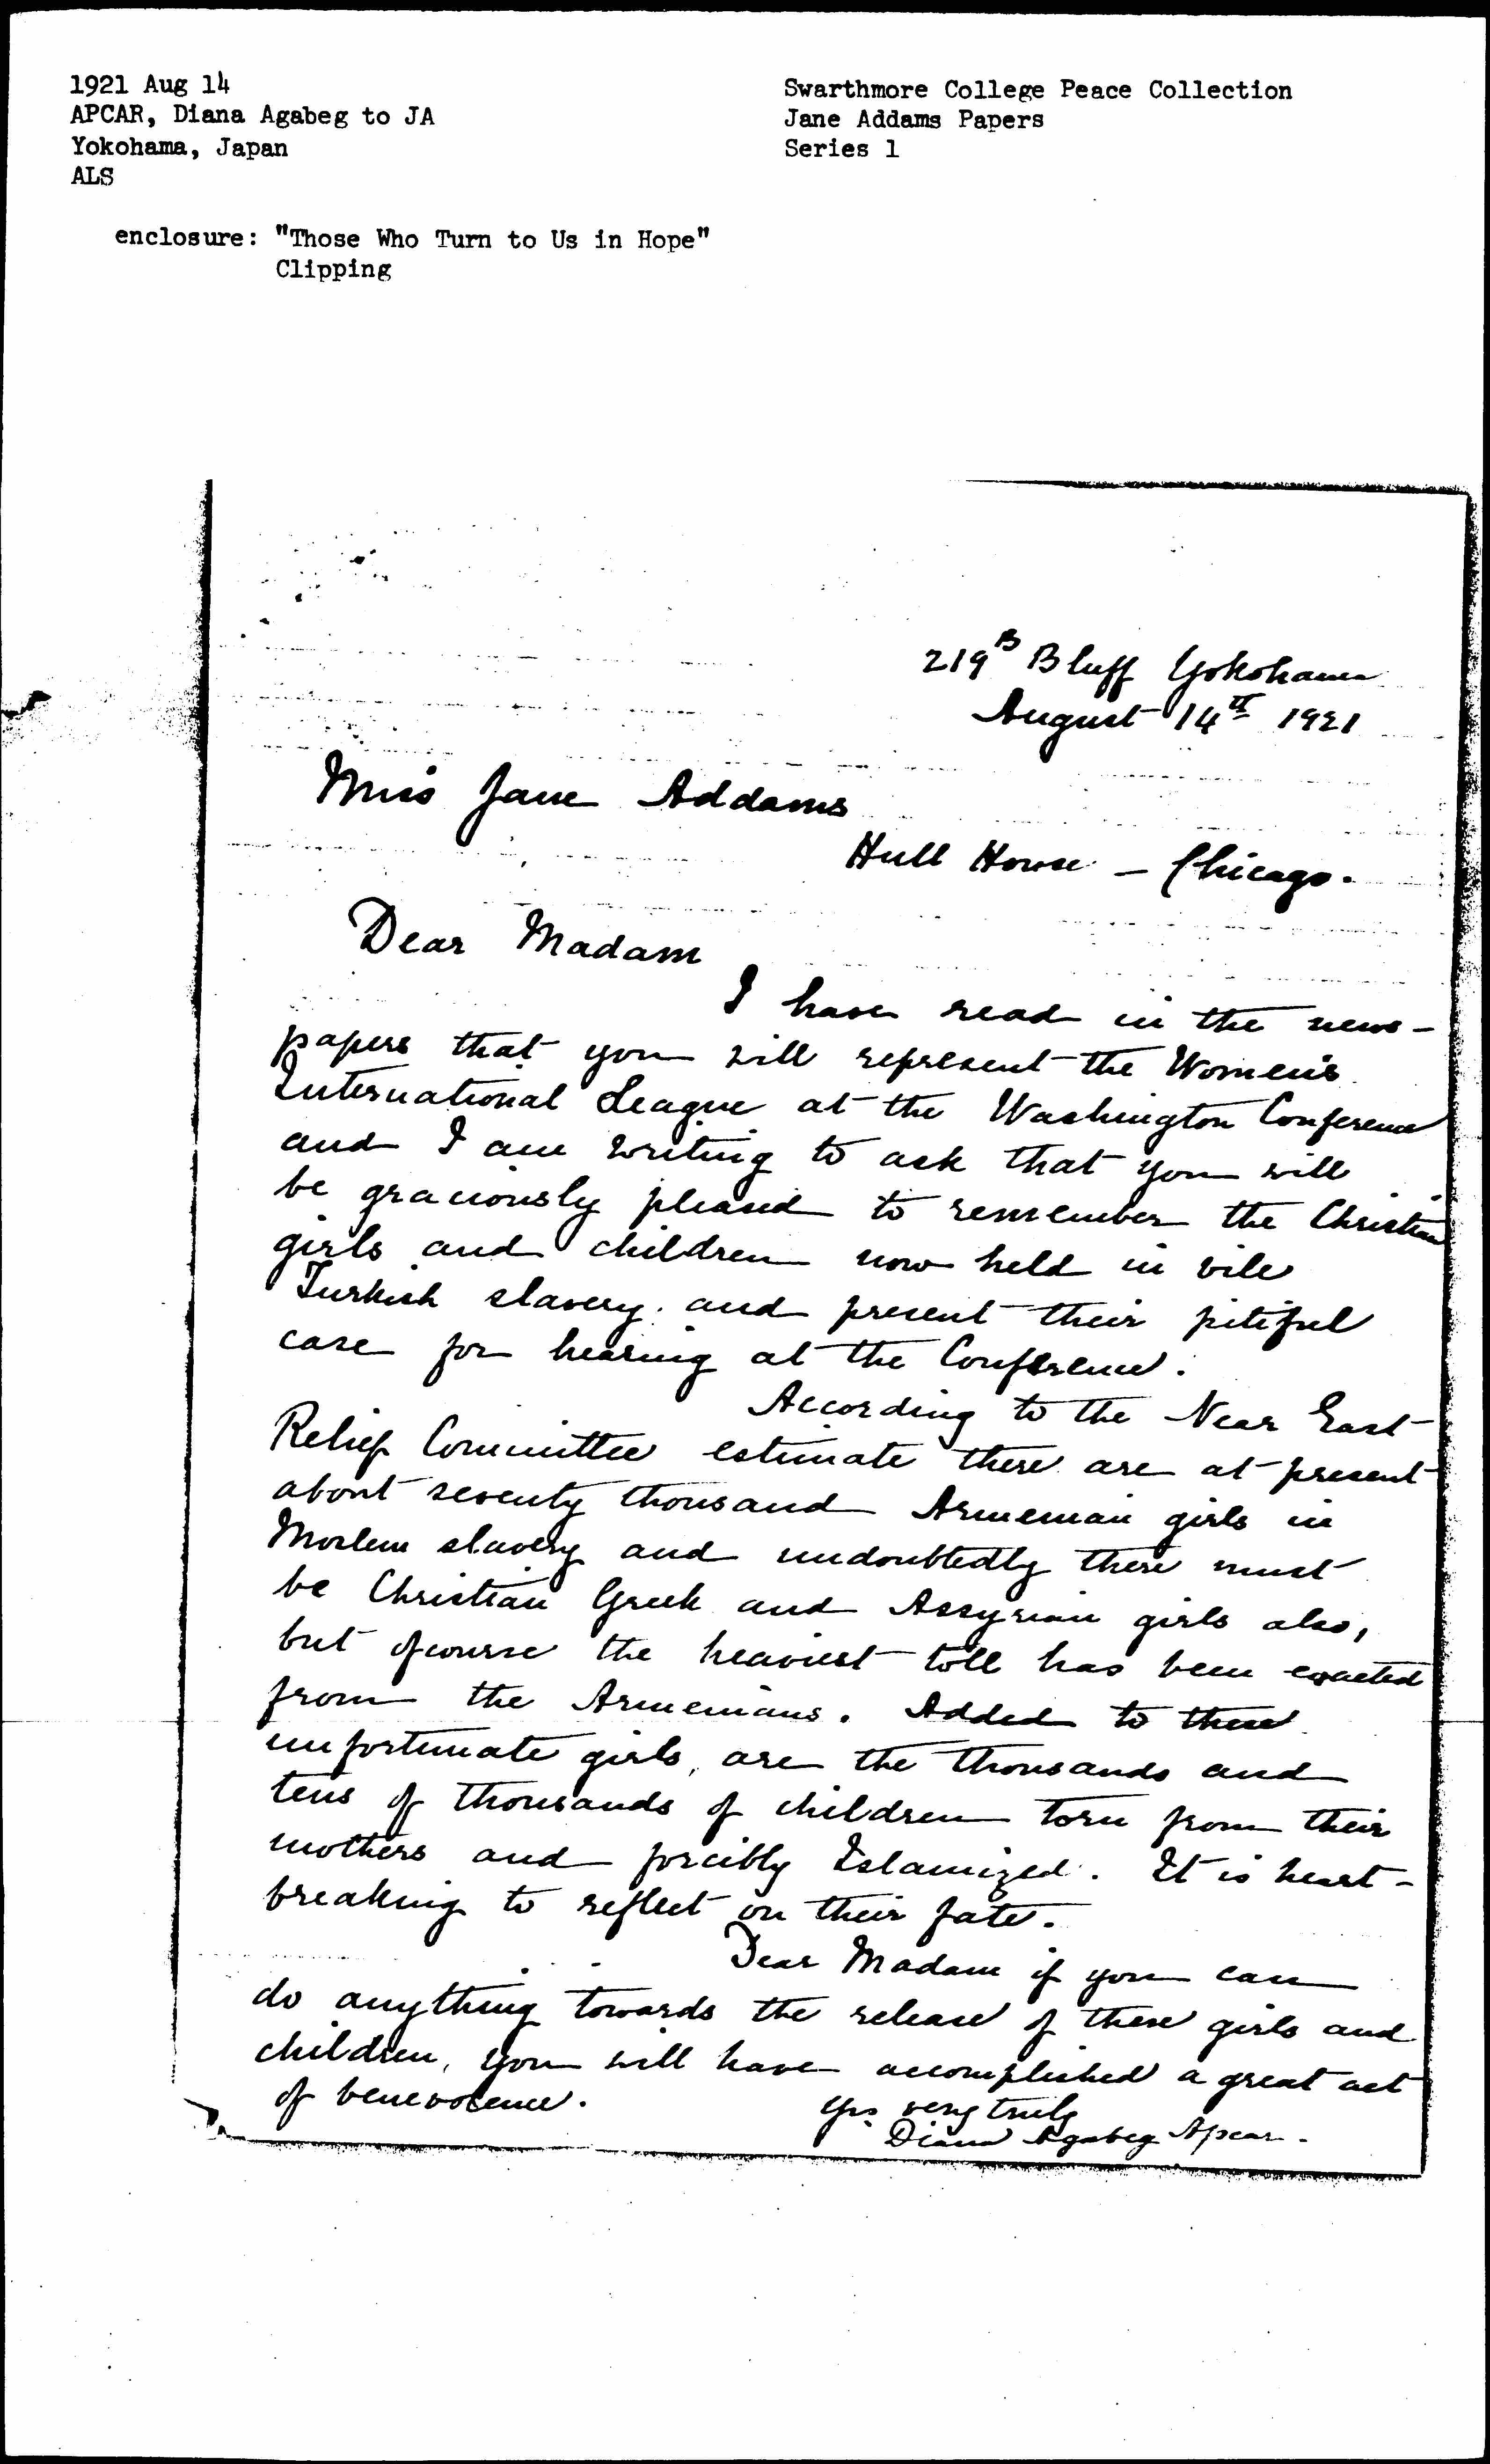 1921 Aug 14
APCAR, Diana Agabeg to JA
Yokohama, Japan
ALS
enclosure: "Those Who Turn to Us in Hope"
Clipping
Swarthmore College Peace Collection
Jane Addams Papers
Series 1
219B Bluff Yokohama
August 14th 1921
Miss Jane Addams
Hull House – Chicago.
Dear Madam
I have read in the news-
papers that you will represent the Women's
International League at the Washington Conference
and I am writing to ask that you will
be graciously pleased to remember the Christian
girls and children now held in vile
Turkish slavery and present their pitiful
case for hearing at the Conference.
According to the Near East
Relief Committee estimate there are at present
about seventy thousand Armenian girls in
Moslem slavery and undoubtedly there must
be Christian Greek and Assyrian girls also,
but ofcourse the heaviest toll has been exacted
from the Armenians. Added to these
unfortunate girls, are the thousands and
tens of thousands of children torn from their
mothers and forcibly Islamized. It is heart-
breaking to reflect on their fate.
Dear Madam if you can
do anything towards the release of these girls and
children, you will have accomplished a great act
of benevolence.
Yrs very truly
Diana Agabeg Apcar.